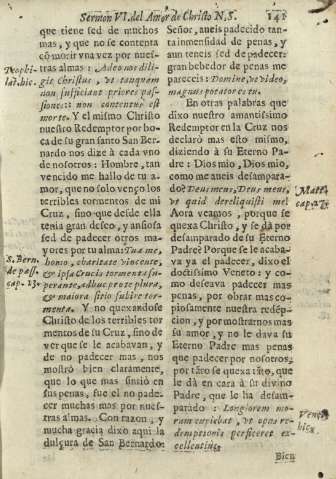 Sermon VI. del Amor de Christo N.S. 141
que tiene sed de muchos
mas, y que no se contenta
cō morir vna vez por nues-
tras almas: Adeo nos dili-
git Christus, ut tanquam
non sufficiant priores pas-
siones: non contentus est
morte. Y el mismo Christo
nuestro Redemptor por bo-
ca de su gran santo San Ber-
nardo nos dize à cada vno
de nosotros: Hombre, tan
vencido me hallo de tu a-
mor, que no solo venço los
terribles tormentos de mi
Cruz, sino que desde ella
tenia gran deseo, y ansiosa
sed de padecer otros ma-
yores por tu alma: Tua me,
homo, charitate vincente,
& ipsa Crucis tormenta su-
perante, adhuc pro te plura,
& maiora sitio subire tor-
menta. Y no quexandose
Christo de los terribles tor-
mentos de su Cruz, sino de
ver que se le acabavan, y
de no padecer mas, nos
mostrò bien claramente,
que lo que mas sintiò en
sus penas, fue el no pade-
cer muchas mas por nues-
tras almas. Con razon, y
mucha gracia dixo aqui la
dulçura de San Bernardo:
Theophi-
lat. hic.
S. Bern.
de pass.
cap. 13.
Señor, aveis padecido tan-
ta inmensidad de penas, y
aun teneis sed de padecer:
gran bebedor de penas me
pareceis: Domine, ut video,
magnus potator es tu.
En otras palabras que
dixo nuestro amantissimo
Redemptor en la Cruz nos
declarò mas esto mismo,
diziendo à su Eterno Pa-
dre: Dios mio, Dios mio,
como me aveis desampara-
do? Deus meus, Deus meus,
ut quid dereliquisti me?
Aora veamos, porque se
quexa Christo, y se dà por
desamparado de su Eterno
Padre? Porque se le acaba-
va ya el padecer, dixo el
doctissimo Veneto: y co-
mo deseava padecer mas
penas, por obrar mas co-
piosamente nuestra redēp-
cion, y por mostrarnos mas
su amor, y no le dava su
Eterno Padre mas penas
que padecer por nosotros,
por tāto se quexa desto, que
le dà en cara à su divino
Padre, que le ha desam-
parado: Longiorem mo-
ram cupiebat, ut opus re-
demptionis perficeret ex-
cellentius.
Matt.
cap. 27.
Venet.
hic.
Bien